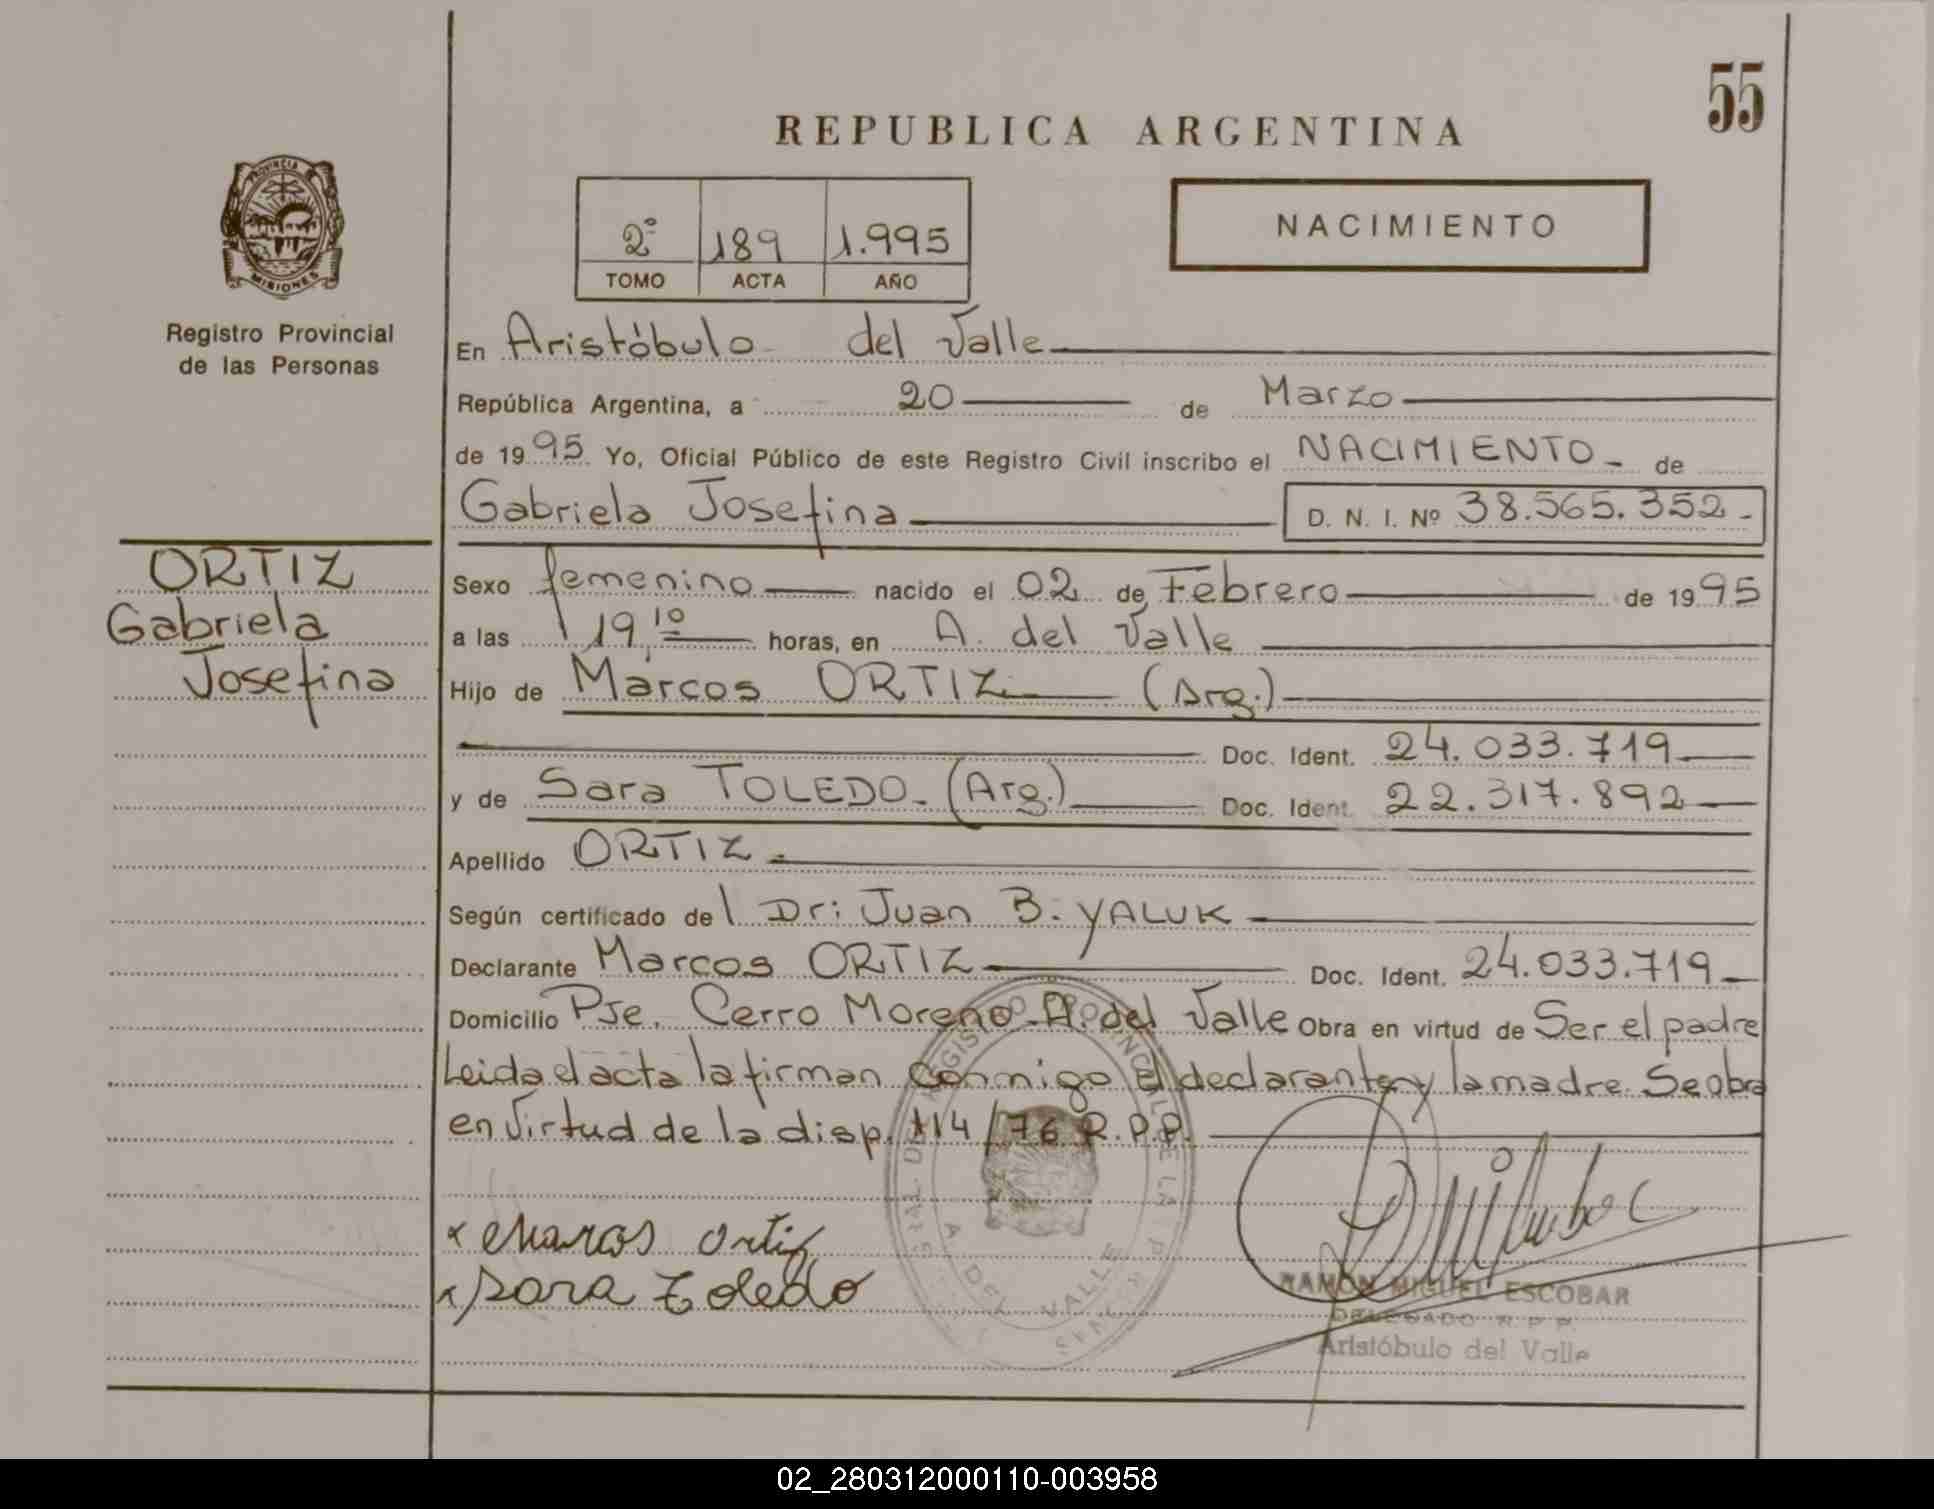 55
REPUBLICA ARGENTINA
PROVINCIA DE
MISIONES
Registro Provincial
de las Personas
2º 189 1.995
TOMO ACTA AÑO
NACIMIENTO
En Aristóbulo del Valle
República Argentina, a 20 de Marzo
de 1995 Yo, Oficial Público de este Registro Civil inscribo el NACIMIENTO de
Gabriela Josefina D. N. I. Nº 38.565.352
ORTIZ
Gabriela
Josefina
Sexo femenino nacido el 02 de Febrero de 1995
a las 19,10 horas, en A. del Valle
Hijo de Marcos ORTIZ (Arg.)
Doc. Ident. 24.033.719
y de Sara TOLEDO. (Arg.) Doc. Ident. 22.317.892
Apellido ORTIZ.
Según certificado del Dr: Juan B. YALUK
Declarante Marcos ORTIZ Doc. Ident. 24.033.719
Domicilio Pje. Cerro Moreno A. del Valle Obra en virtud de Ser el padre
Leida el acta la firman conmigo el declarante y la madre. Se obra
en virtud de la disp. 114/76 R.P.P.
REGISTRO PROVINCIAL DE LA
A. DEL VALLE
MISIONES
x Marcos Ortiz
x Sara Toledo
RAMÓN MIGUEL ESCOBAR
DELEGADO R. P. P.
Aristóbulo del Valle
02_280312000110-003958